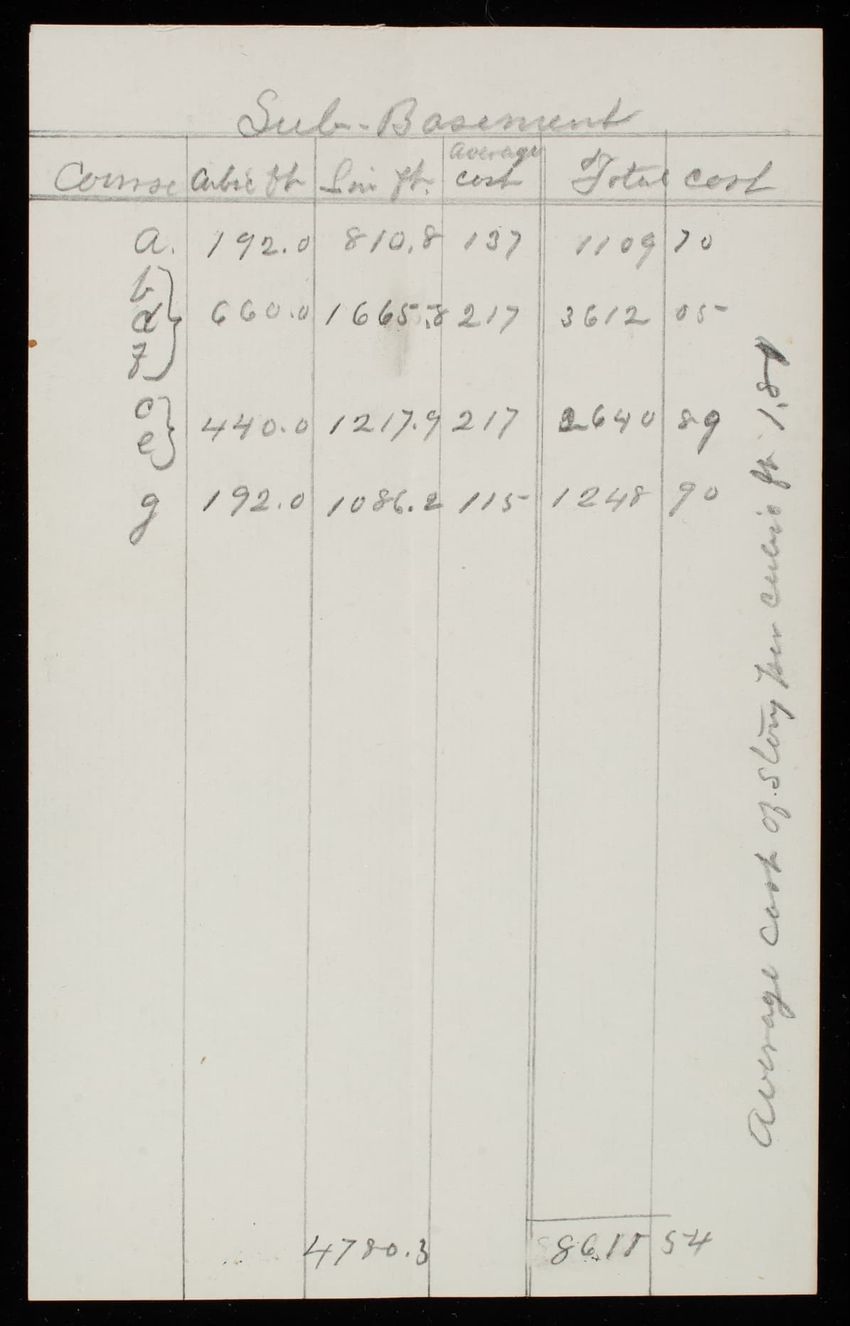 Sub-Basement
Course Cubic ft Lin ft. average cost Total cost
a. 192.0 810.8 137 1109 70
b
d 660.0 1665.8 217 3612 05
f
c 440.0 1217.9 217 2640 89
e
g 192.0 1086.2 115 1248 90
4780.3 8611 54
Average cost of story per cubic ft 1.81